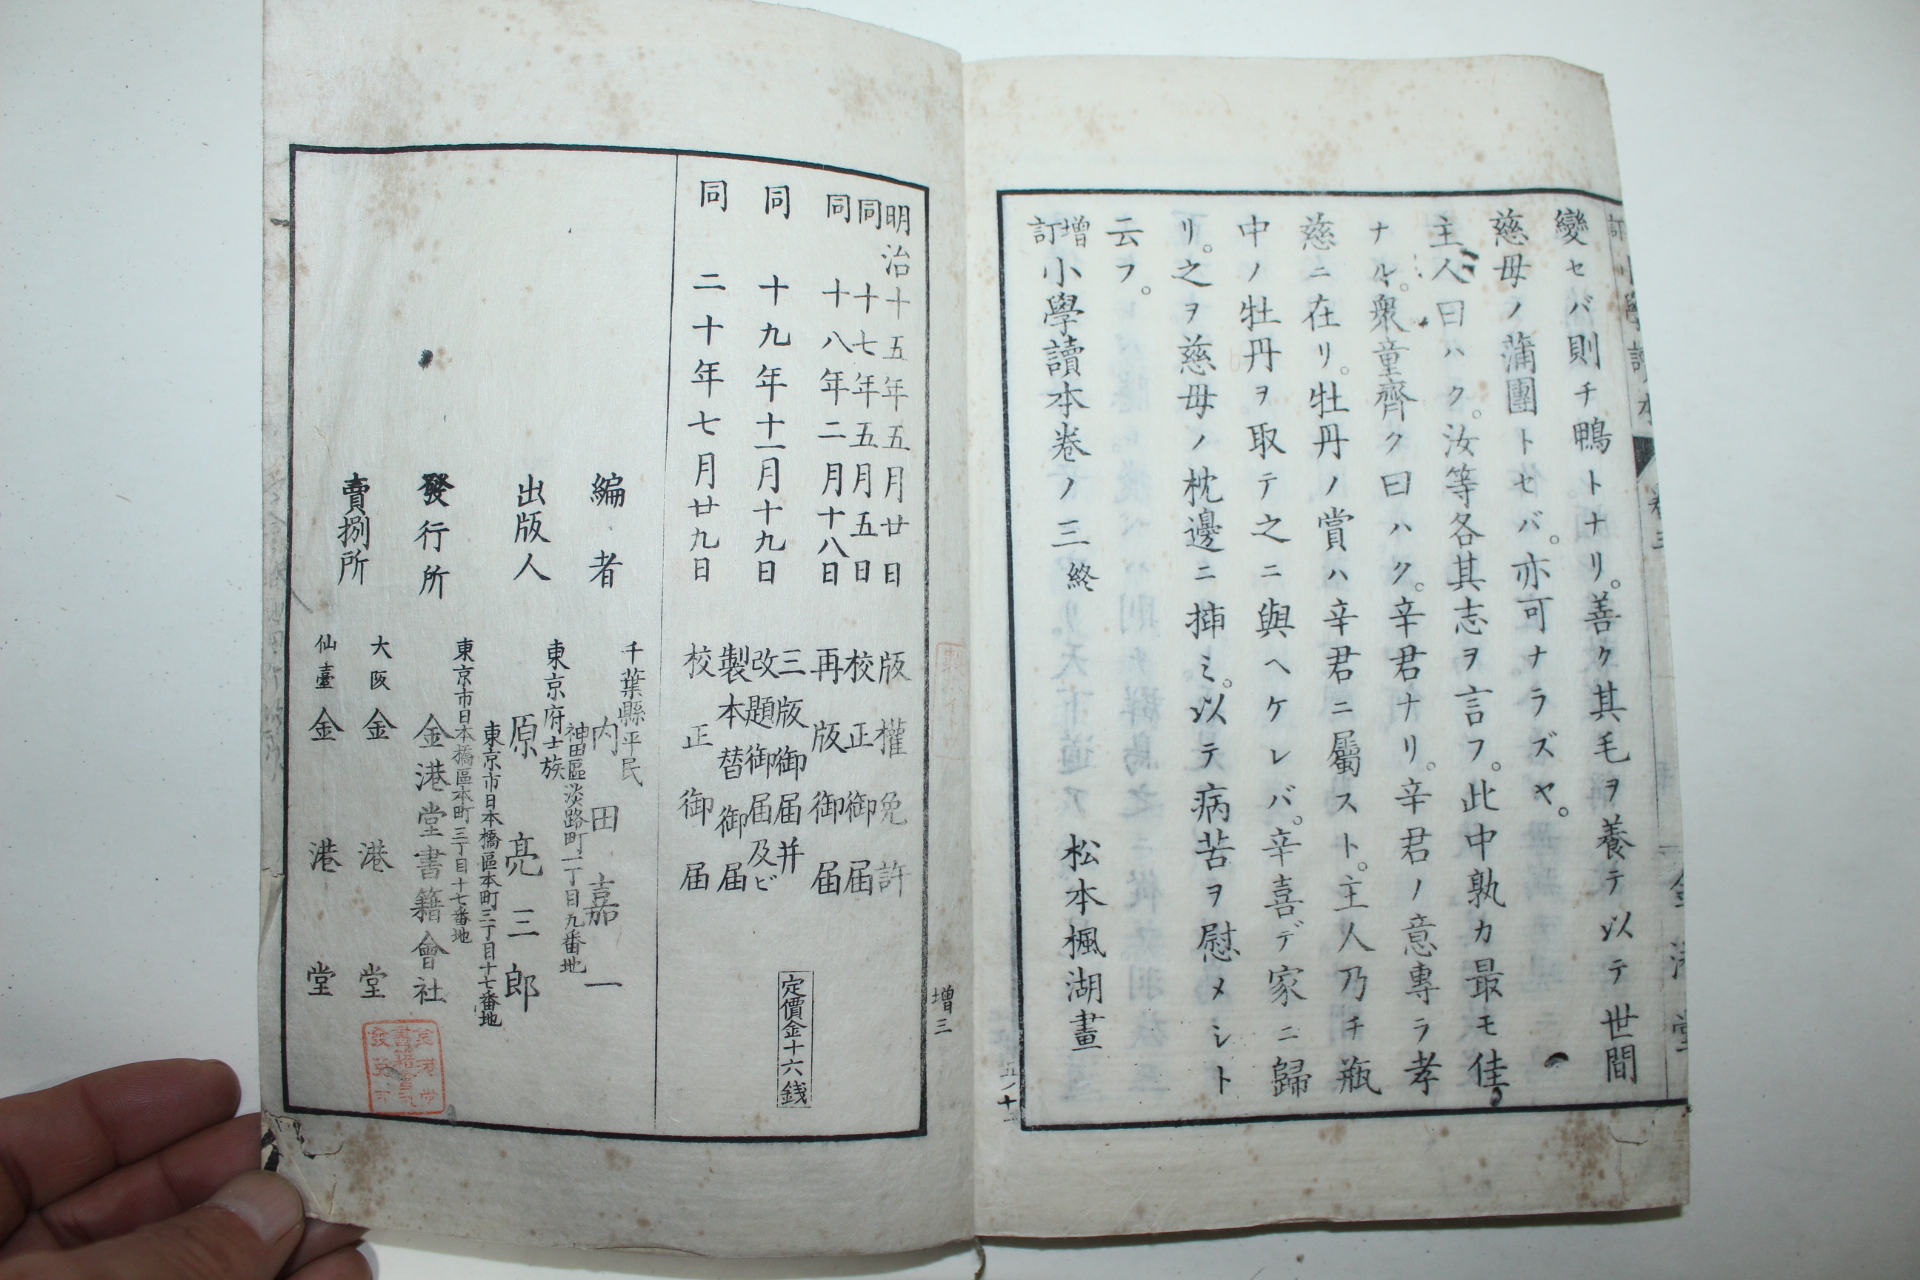 變セバ則チ鴨トナリ。善ク其毛ヲ養テ以テ世間
慈母ノ蒲團ト作セバ。亦可ナラズヤ。
主人曰ハク。汝等各其志ヲ言フ。此中孰カ最モ佳
ナル。衆童齊ク曰ハク。辛君ナリ。辛君ノ意專ラ孝
慈ニ在リ。牡丹ノ賞ハ辛君ニ屬スト。主人乃チ瓶
中ノ牡丹ヲ取テ之ニ與ヘケレバ。辛喜デ家ニ歸
リ。之ヲ慈母ノ枕邊ニ揷ミ。以テ病苦ヲ慰メシト
云フ。
增訂小學讀本卷ノ三終　松本楓湖畫
明治十五年五月廿日　版權免許
同　十七年五月五日　校正御届
同　十八年二月十八日　再版御届
同　十九年十一月十九日　三版御届并
改題御届及ビ
製本替御届
同　二十年七月廿九日　校正御届
定價金十六錢
增三
編者　千葉縣平民　內田嘉一
神田區淡路町一丁目九番地
出版人　東京府士族　原亮三郎
東京市日本橋區本町三丁目十七番地
發行所　東京市日本橋區本町三丁目十七番地
金港堂書籍會社
賣捌所　大阪　金港堂
仙臺　金港堂